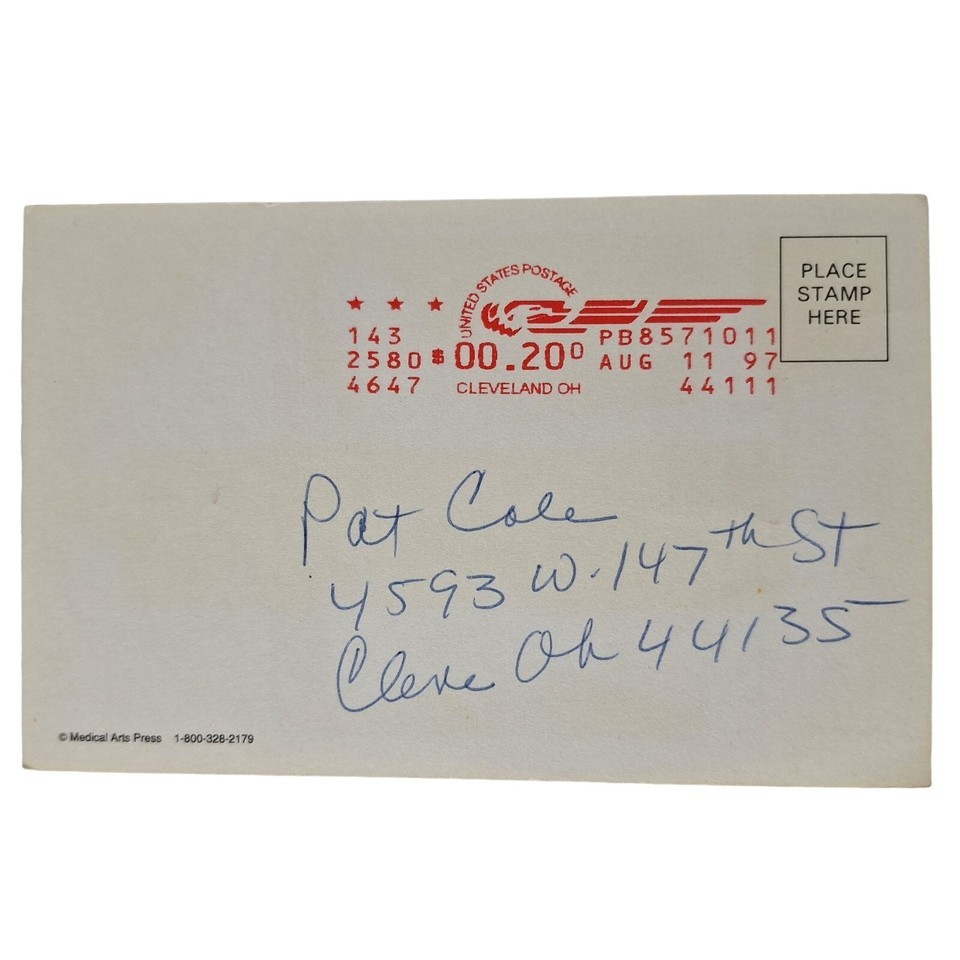 PLACE
STAMP
HERE
UNITED STATES POSTAGE
★ ★ ★
143 PB8571011
2580 $00.20⁰ AUG 11 97
4647 CLEVELAND OH 44111
Pat Cole
4593 W. 147th St
Cleve Oh 44135
© Medical Arts Press 1-800-328-2179